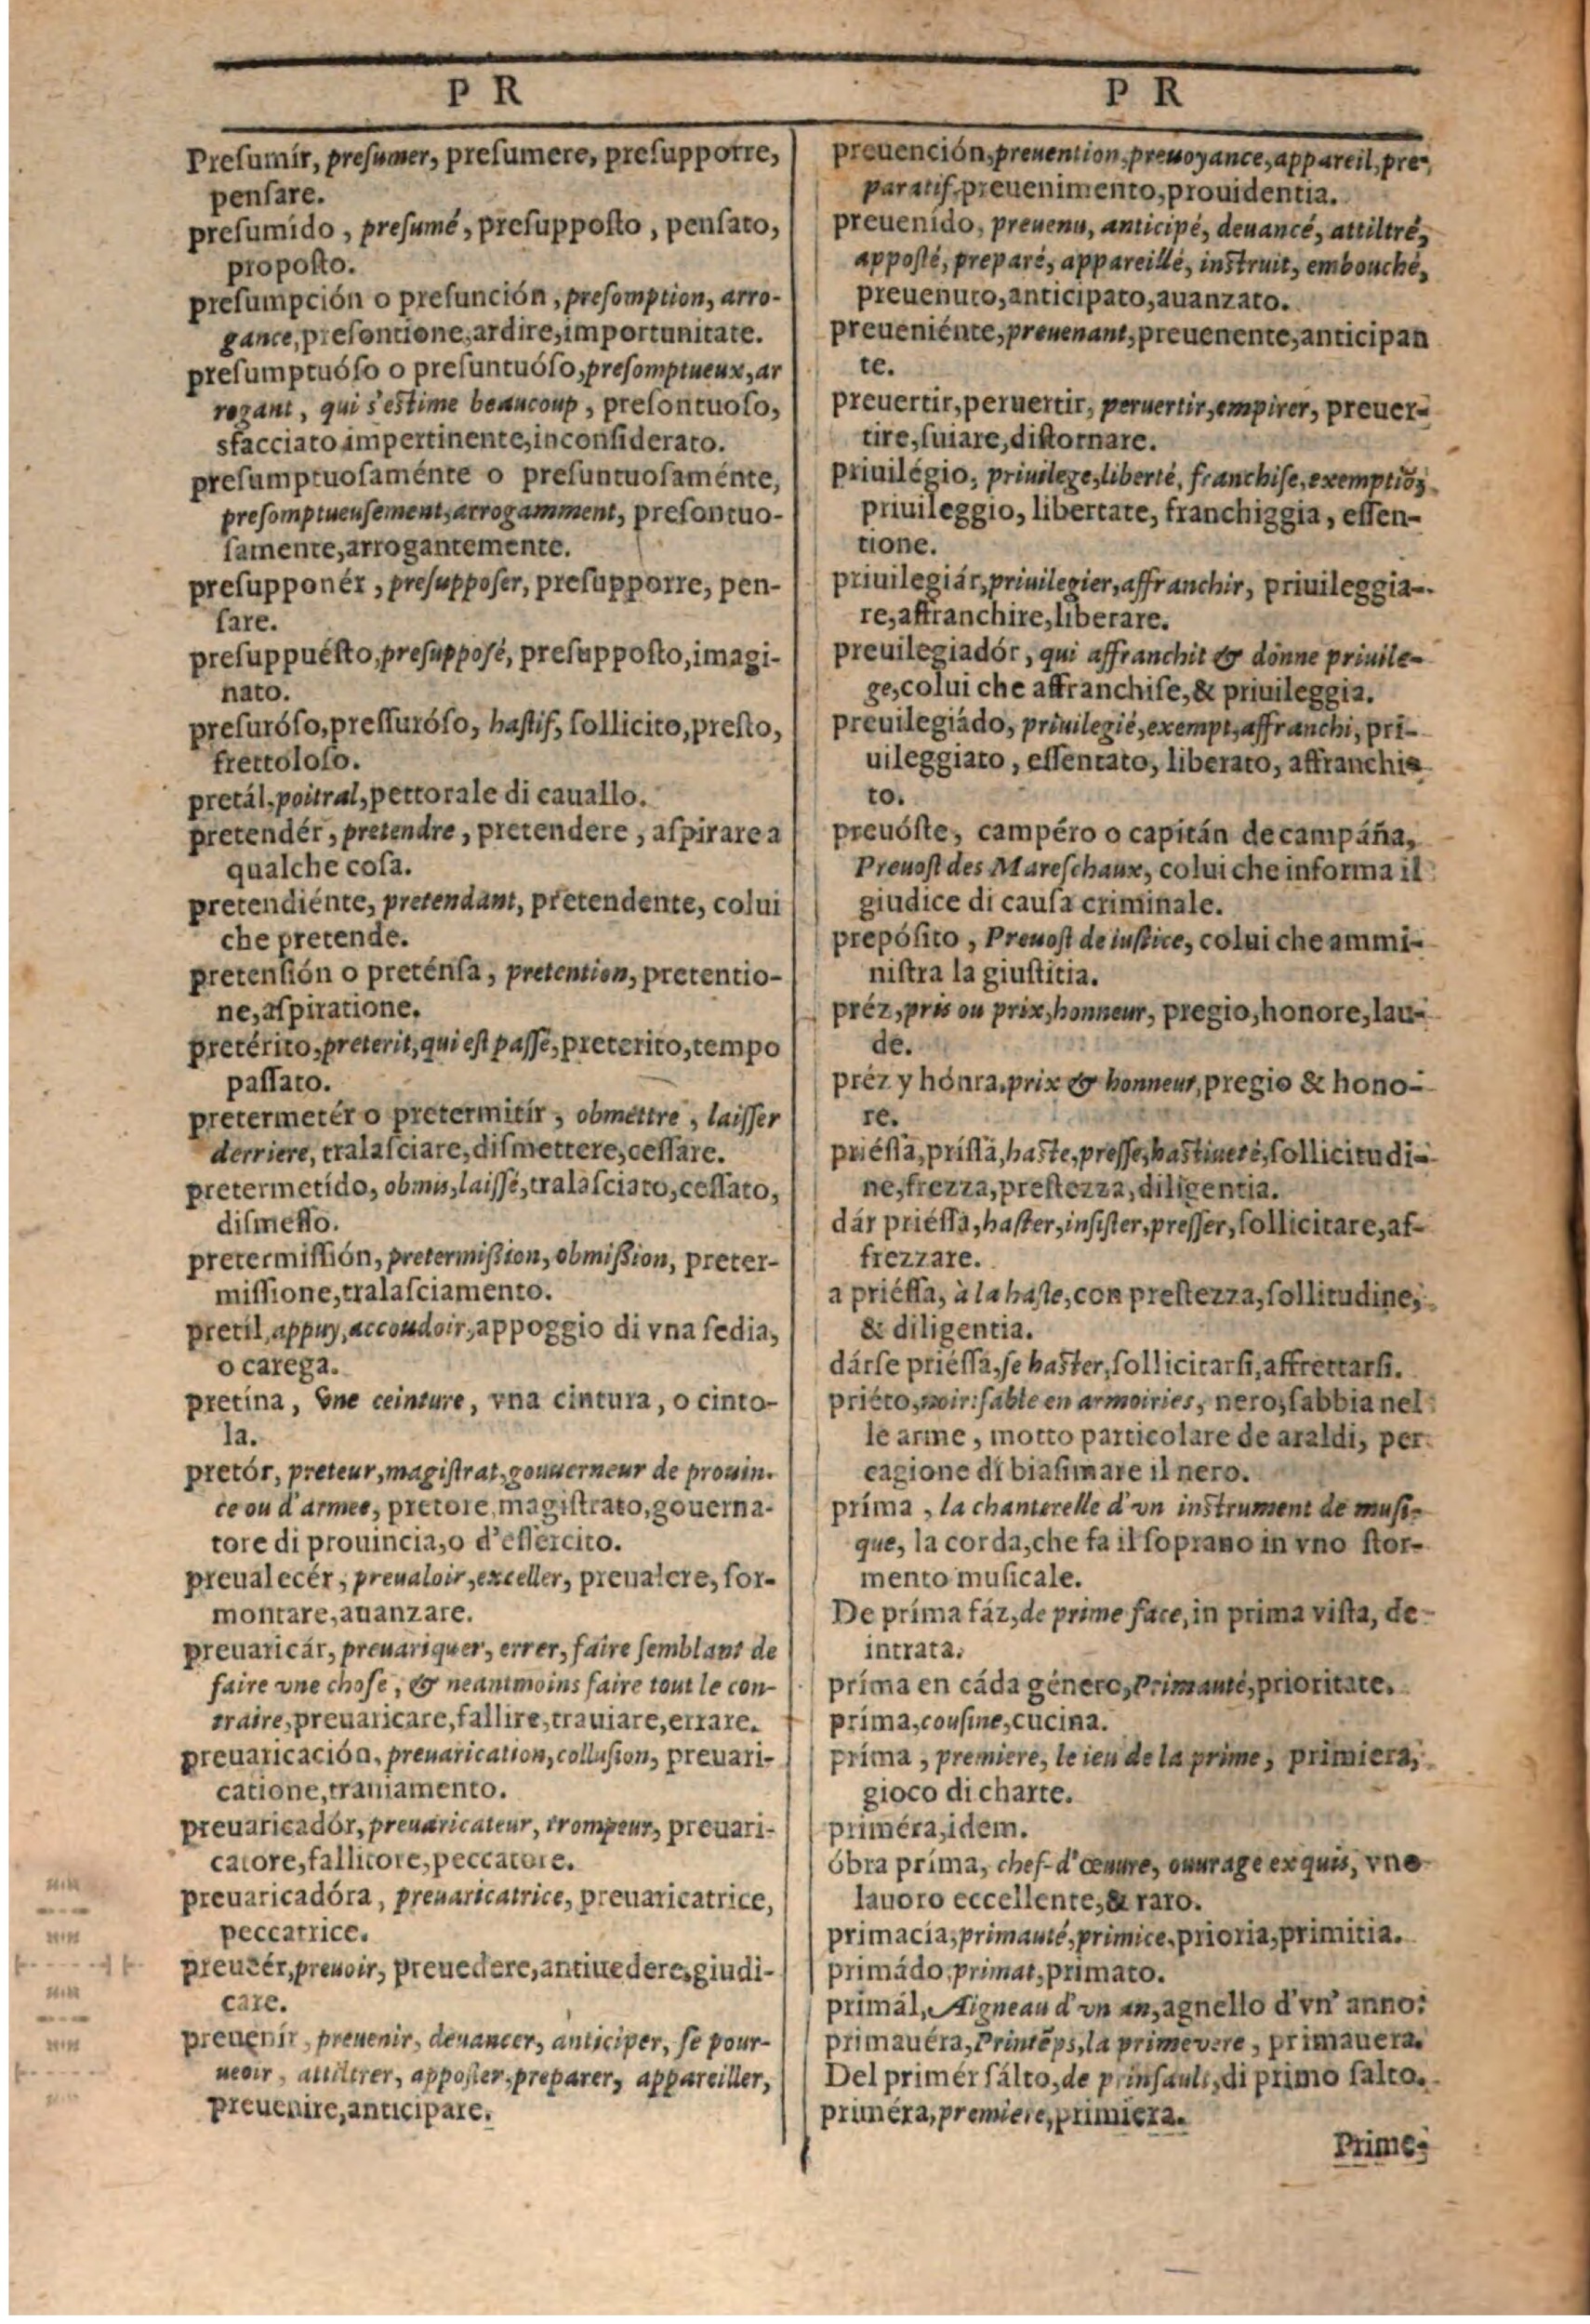 P R
Preſumír, preſumer, preſumere, preſupporre,
penſare.
preſumído, preſumé, preſuppoſto, penſato,
propoſto.
preſumpción o preſunción, preſomption, arro-
gance, preſontione, ardire, importunitate.
preſumptuóſo o preſuntuóſo, preſomptueux, ar
rogant, qui s'eſtime beaucoup, preſontuoſo,
sfacciato impertinente, inconſiderato.
preſumptuoſaménte o preſuntuoſaménte,
preſomptueuſement, arrogamment, preſontuo-
ſamente, arrogantemente.
preſupponér, preſuppoſer, preſupporre, pen-
ſare.
preſuppuéſto, preſuppoſé, preſuppoſto, imagi-
nato.
preſuróſo, preſſuróſo, haſtif, ſollicito, preſto,
frettoloſo.
pretál, poitral, pettorale di cauallo.
pretendér, pretendre, pretendere, aſpirare a
qualche coſa.
pretendiénte, pretendant, pretendente, colui
che pretende.
pretenſión o preténſa, pretention, pretentio-
ne, aſpiratione.
pretérito, preterit, qui eſt paſſé, preterito, tempo
paſſato.
pretermetér o pretermitír, obmettre, laiſſer
derriere, tralaſciare, diſmettere, ceſſare.
pretermetído, obmis, laiſſé, tralaſciato, ceſſato,
diſmeſſo.
pretermiſſión, pretermiſsion, obmiſsion, preter-
miſſione, tralaſciamento.
pretil, appuy, accoudoir, appoggio di vna ſedia,
o carega.
pretína, vne ceinture, vna cintura, o cinto-
la.
pretór, preteur, magiſtrat, gouuerneur de prouin-
ce ou d'armee, pretore, magiſtrato, gouerna-
tore di prouincia, o d'eſſercito.
preualecér, preualoir, exceller, preualere, ſor-
montare, auanzare.
preuaricár, preuariquer, errer, faire ſemblant de
faire vne choſe, & neantmoins faire tout le con-
traire, preuaricare, fallire, trauiare, errare.
preuaricación, preuarication, colluſion, preuari-
catione, trauiamento.
preuaricadór, preuaricateur, trompeur, preuari-
catore, fallitore, peccatore.
preuaricadóra, preuaricatrice, preuaricatrice,
peccatrice.
preueér, preuoir, preuedere, antiuedere, giudi-
care.
preuenír, preuenir, deuancer, anticiper, ſe pour-
ueoir, attiltrer, appoſter, preparer, appareiller,
preuenire, anticipare.
P R
preuención, preuention, preuoyance, appareil, pre-
paratif, preuenimento, prouidentia.
preuenído, preuenu, anticipé, deuancé, attiltré,
appoſté, preparé, appareillé, inſtruit, embouché,
preuenuto, anticipato, auanzato.
preueniénte, preuenant, preuenente, anticipan
te.
preuertir, peruertir, peruertir, empirer, preuer-
tire, ſuiare, diſtornare.
priuilégio, priuilege, liberté, franchiſe, exemptiõ,
priuileggio, libertate, franchiggia, eſſen-
tione.
priuilegiár, priuilegier, affranchir, priuileggia-
re, affranchire, liberare.
preuilegiadór, qui affranchit & donne priuile-
ge, colui che affranchiſe, & priuileggia.
preuilegiádo, priuilegié, exempt, affranchi, pri-
uileggiato, eſſentato, liberato, affranchia
to.
preuóſte, campéro o capitán de campáña,
Preuoſt des Mareſchaux, colui che informa il
giudice di cauſa criminale.
prepóſito, Preuoſt de iuſtice, colui che ammi-
niſtra la giuſtitia.
préz, pris ou prix, honneur, pregio, honore, lau-
de.
préz y hónra, prix & honneur, pregio & hono-
re.
priéſſa, príſſa, haſte, preſſe, haſtiueté, ſollicitudi-
ne, frezza, preſtezza, diligentia.
dár priéſſa, haſter, inſiſter, preſſer, ſollicitare, af-
frezzare.
a priéſſa, à la haſte, con preſtezza, ſollitudine,
& diligentia.
dárſe priéſſa, ſe haſter, ſollicitarſi, affrettarſi.
priéto, noir: ſable en armoiries, nero, ſabbia nel
le arme, motto particolare de araldi, per
cagione di biaſimare il nero.
príma, la chanterelle d'vn inſtrument de muſi-
que, la corda, che fa il ſoprano in vno ſtor-
mento muſicale.
De príma fáz, de prime face, in prima viſta, de
intrata.
príma en cáda género, Primauté, prioritate.
príma, couſine, cucina.
príma, premiere, le ieu de la prime, primiera,
gioco di charte.
priméra, idem.
óbra príma, chef-d'œuure, ouurage exquis, vno
lauoro eccellente, & raro.
primacía, primauté, primice, prioria, primitia.
primádo, primat, primato.
primál, Aigneau d'vn an, agnello d'vn' anno:
primauéra, Printẽps, la primevere, primauera.
Del primér ſálto, de prinſault, di primo ſalto.
priméra, premiere, primiera.
Prime-